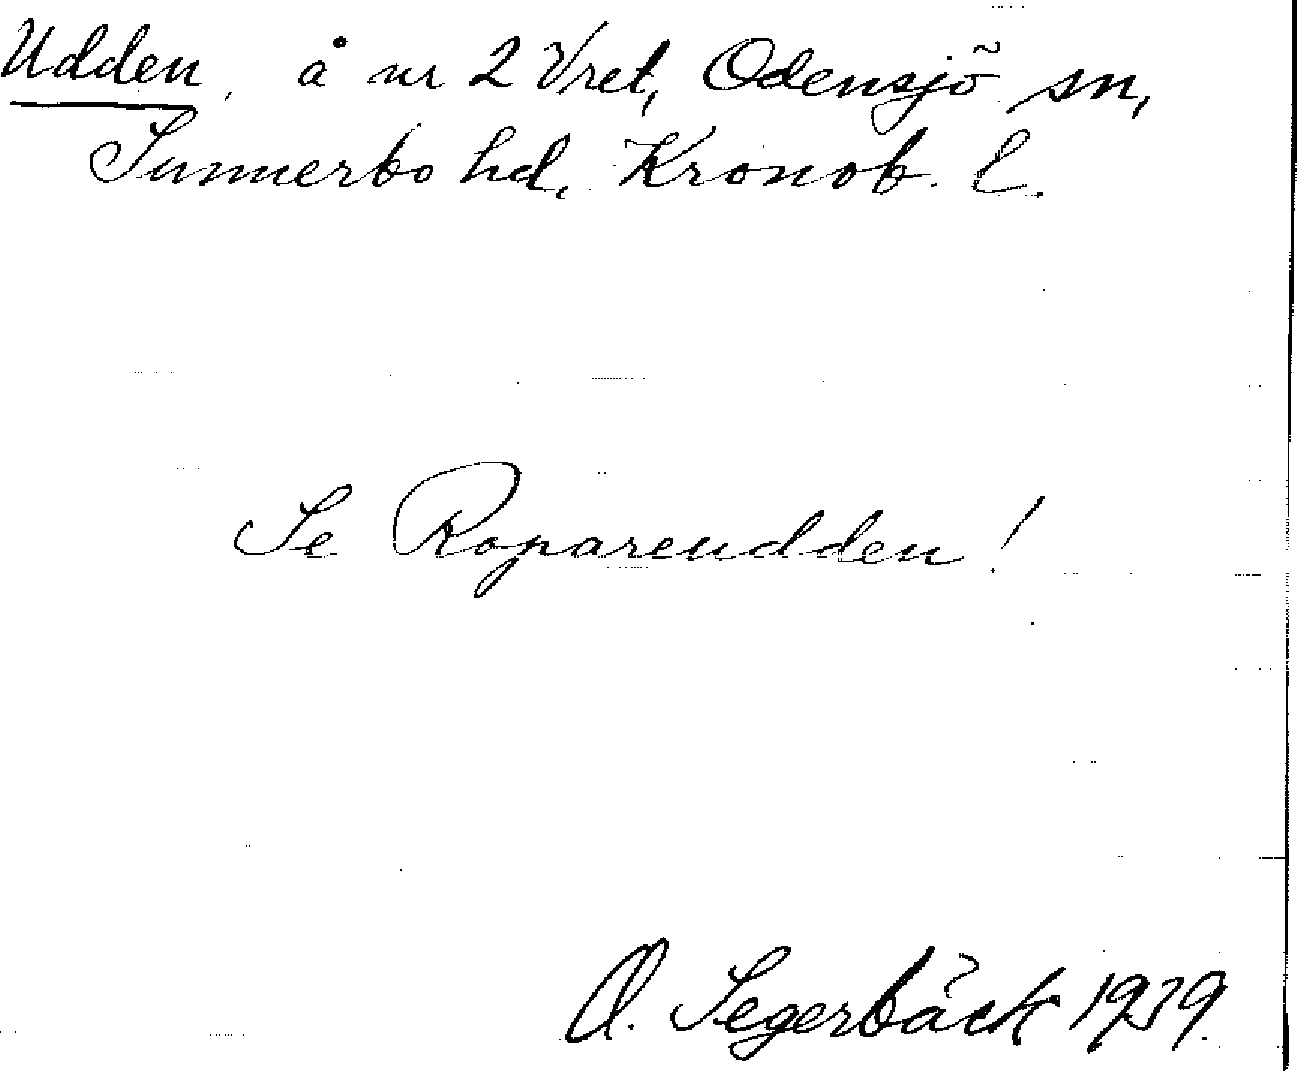 Udden, å nr 2 Vret, Odensjö sn,
Sunnerbo hd, Kronob. l.
Se Ropareudden!
O. Segerbäck 1939.